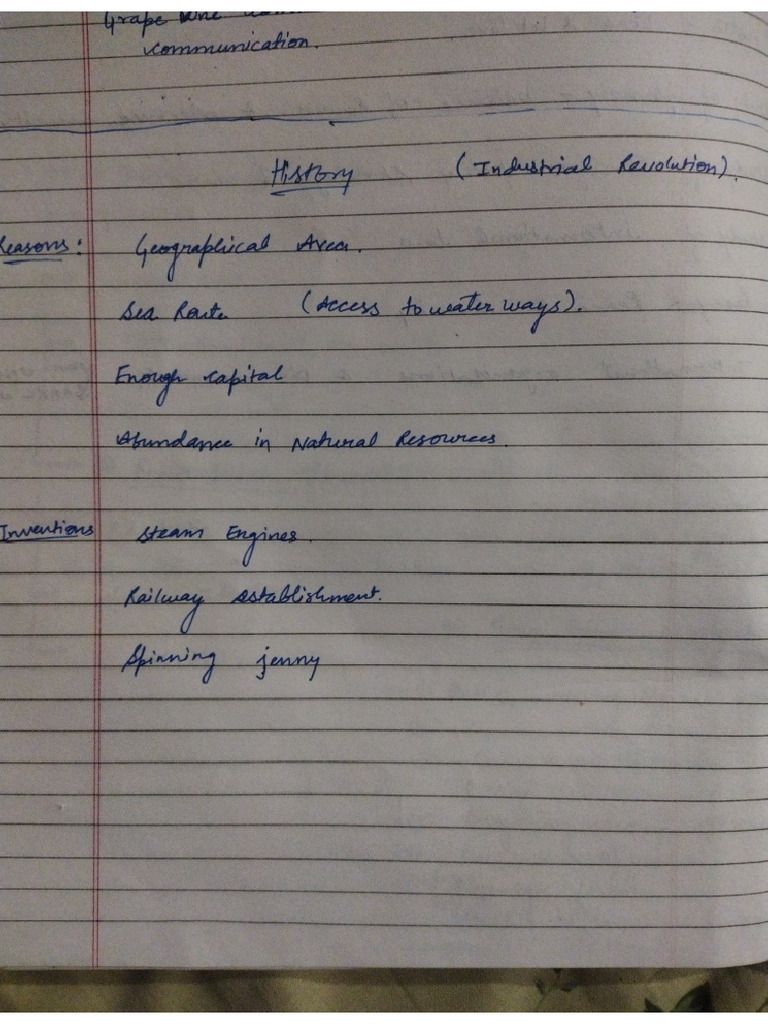 Grape
communication.
History (Industrial Revolution).
Reasons: Geographical Area.
Sea Route (Access to water ways).
Enough capital
Abundance in Natural Resources.
Inventions Steam Engines.
Railway establishment.
Spinning jenny